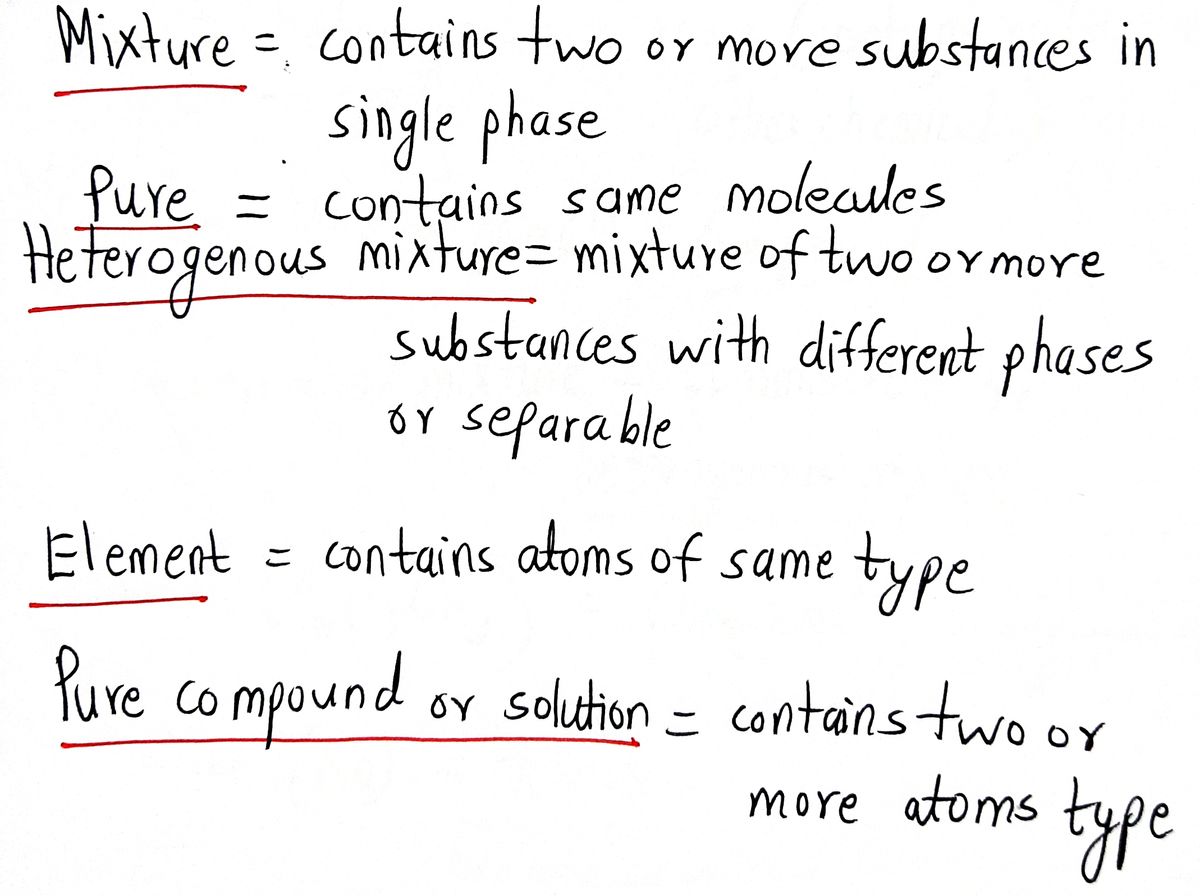 Mixture = contains two or more substances in
single phase
Pure = contains same molecules
Heterogenous mixture = mixture of two or more
substances with different phases
or separable
Element = contains atoms of same type
Pure compound or solution = contains two or
more atoms type